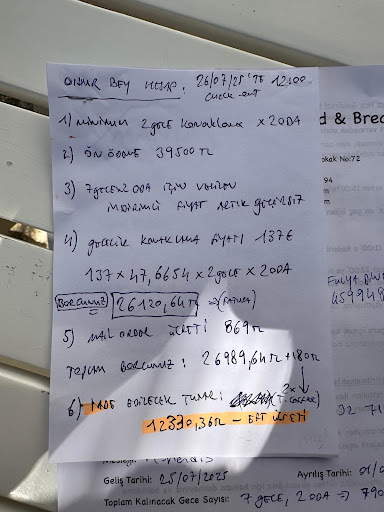 ONUR BEY HESAP: 26/07/25'TE 12:00
check-out
1) minimum 2 gece konaklama x 2 ODA
2) ÖN ÖDEME 39500 TL
3) 7 gece 2 ODA için verilen
indirimli fiyat artık geçersiz
4) gecelik konaklama fiyatı 137€
137 x 47,6654 x 2 gece x 2 ODA
BORCUNUZ 26120,64 TL => (FATURA)
5) MAIL ORDER ÜCRETİ 869 TL
TOPLAM BORCUNUZ: 26989,64 TL + 180 TL
6) İADE EDİLECEK TUTAR: 2x
12330,36 TL - EFT ÜCRETİ
d & Brea
okak No:72
94
45994
Geliş Tarihi: 25/07/2025
Ayrılış Tarihi: 01/0
Toplam Kalınacak Gece Sayısı: 7 gece, 2 ODA =>